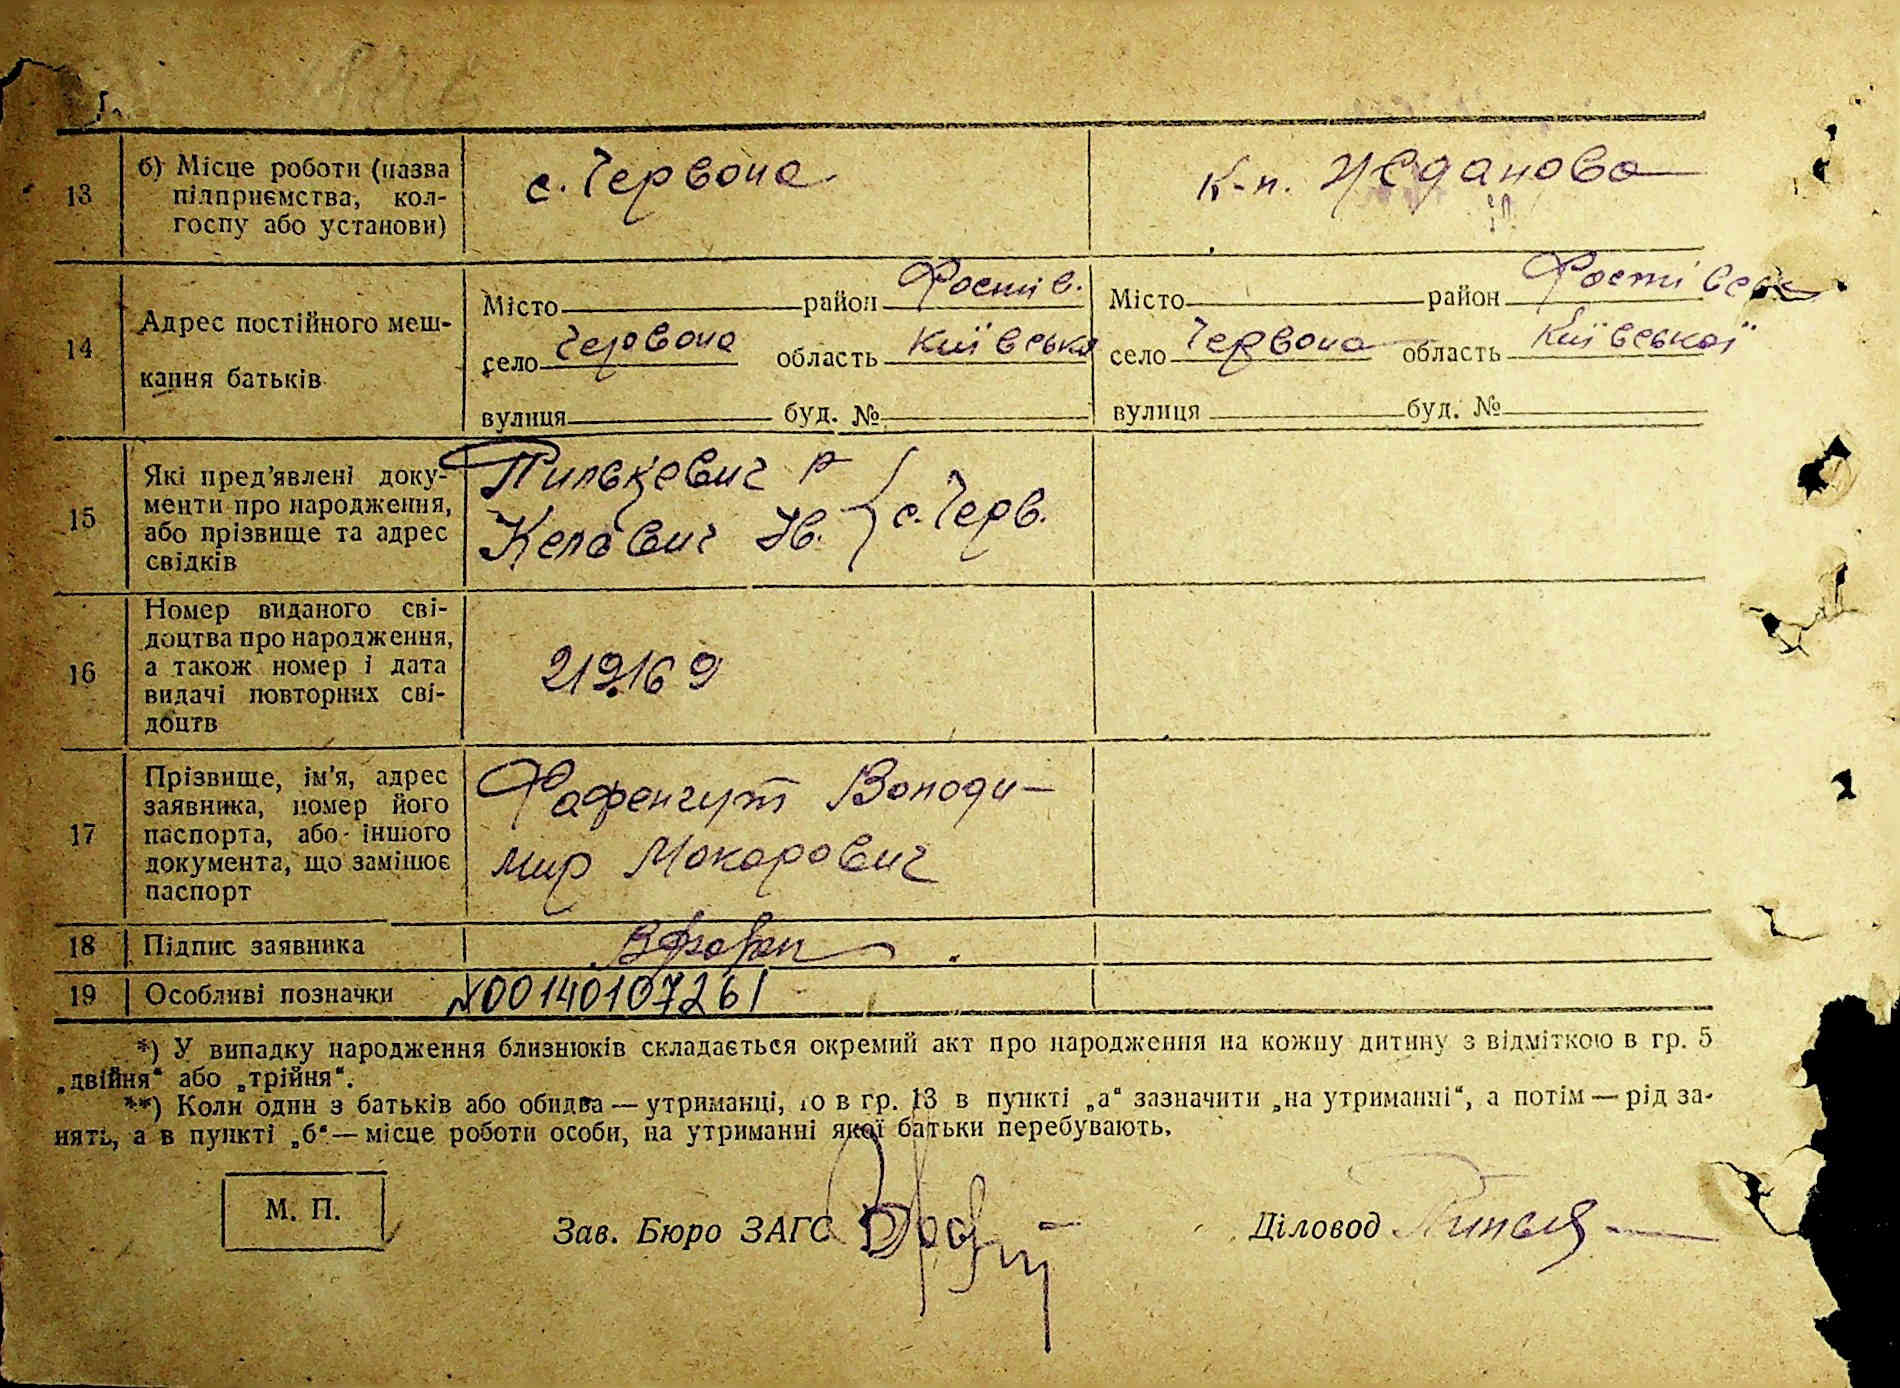 13
б) Місце роботи (назва
підприємства, кол-
госпу або установи)
с. Червона
к-п. Жданова
14
Адрес постійного меш-
кання батьків
Місто район Фастів.
село Червона область Київська
вулиця буд. №
Місто район Фастівськ
село Червона область Київської
вулиця буд. №
15
Які пред'явлені доку-
менти про народження,
або прізвище та адрес
свідків
Пилькевич
с. Черв.
16
Номер виданого сві-
доцтва про народження,
а також номер і дата
видачі повторних сві-
доцтв
219169
17
Прізвище, ім'я, адрес
заявника, номер його
паспорта, або іншого
документа, що замінює
паспорт
Володи-
мир Макарович
18
Підпис заявника
19
Особливі позначки
N00140107261
*) У випадку народження близнюків складається окремий акт про народження на кожну дитину з відміткою в гр. 5
„двійня" або „трійня".
**) Коли один з батьків або обидва — утриманці, то в гр. 13 в пункті „а" зазначити „на утриманні", а потім — рід за-
нять, а в пункті „б" — місце роботи особи, на утриманні якої батьки перебувають.
М. П.
Зав. Бюро ЗАГС
Діловод